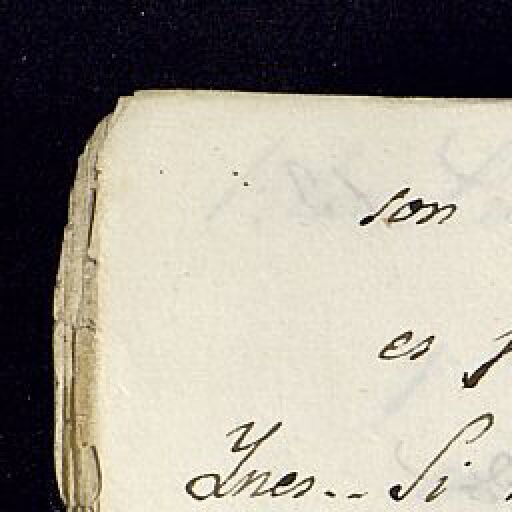 son
es
Ynes.. Si